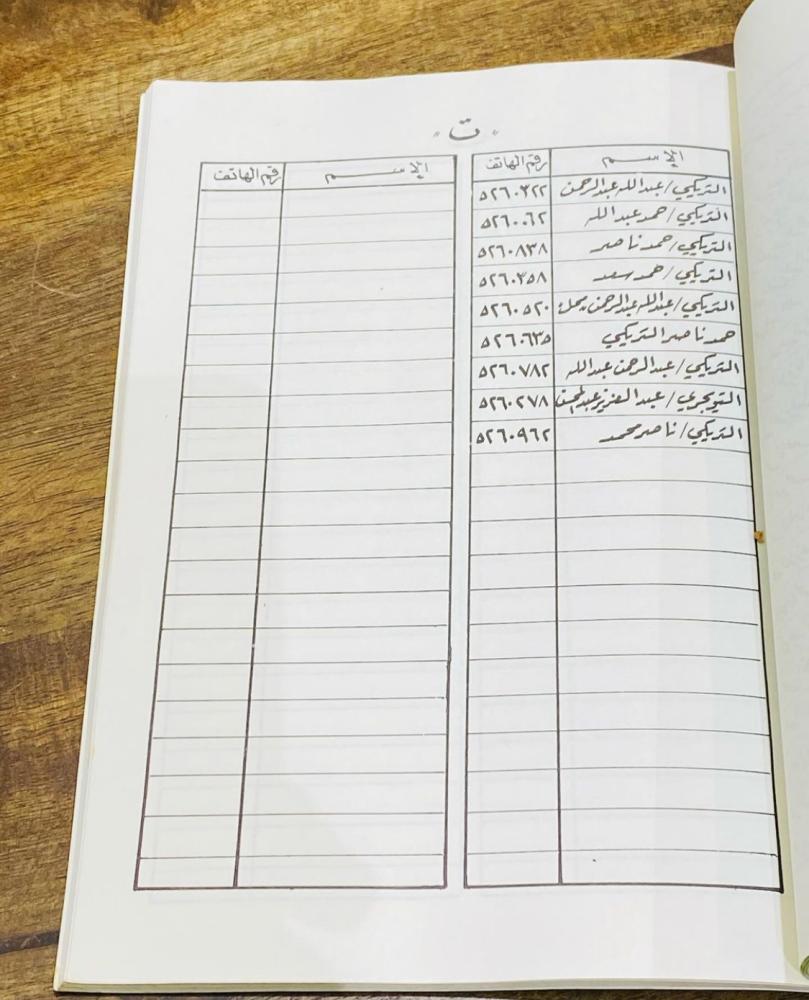 "ت"
الإسم رقم الهاتف
التريكي/عبدالله عبدالرحمن ٥٢٦٠٣٢٢
التريكي/حمد عبدالله ٥٢٦٠٠٦٢
التريكي/حمد ناصر ٥٢٦٠٨٣٨
التريكي/حمد سعد ٥٢٦٠٣٥٨
التريكي/عبدالله عبدالرحمن محل ٥٢٦٠٥٢٠
حمد ناصر التريكي ٥٢٦٠٦٣٥
التريكي/عبدالرحمن عبدالله ٥٢٦٠٧٨٢
التويجري/عبدالعزيز عبدالمحسن ٥٢٦٠٢٧٨
التريكي/ناصر محمد ٥٢٦٠٩٦٢
الإسم رقم الهاتف